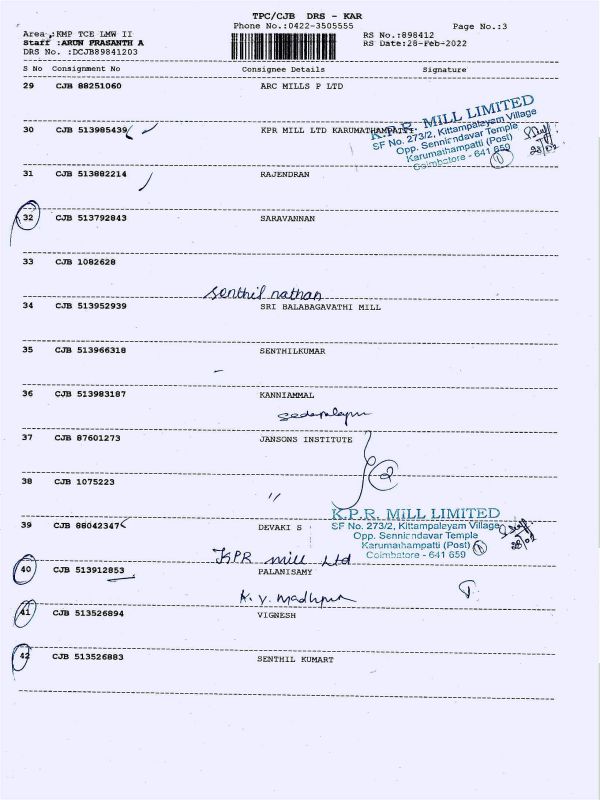 TPC/CJB DRS - KAR
Phone No.:0422-3505555 Page No.:3
Area :KMP TCE LMW II RS No.:898412
Staff :ARUN PRASANTH A RS Date:28-Feb-2022
DRS No. :DCJB89841203
S No Consignment No Consignee Details Signature
29 CJB 88251060 ARC MILLS P LTD
K.P.R. MILL LIMITED
SF No. 273/2, Kittampalayam Village
Opp. Sennicndavar Temple
Karumathampatti (Post)
Coimbatore - 641 659
30 CJB 513985439 KPR MILL LTD KARUMATHAMPATTI
31 CJB 513882214 RAJENDRAN
32 CJB 513792843 SARAVANNAN
33 CJB 1082628
Senthil nathan
34 CJB 513952939 SRI BALABAGAVATHI MILL
35 CJB 513966318 SENTHILKUMAR
36 CJB 513983187 KANNIAMMAL
37 CJB 87601273 JANSONS INSTITUTE
38 CJB 1075223
"
K.P.R. MILL LIMITED
SF No. 273/2, Kittampalayam Village
Opp. Sennicndavar Temple
Karumathampatti (Post)
Coimbatore - 641 659
39 CJB 88042347 DEVAKI S
KPR mill Ltd
40 CJB 513912853 PALANISAMY
41 CJB 513526894 VIGNESH
42 CJB 513526883 SENTHIL KUMART